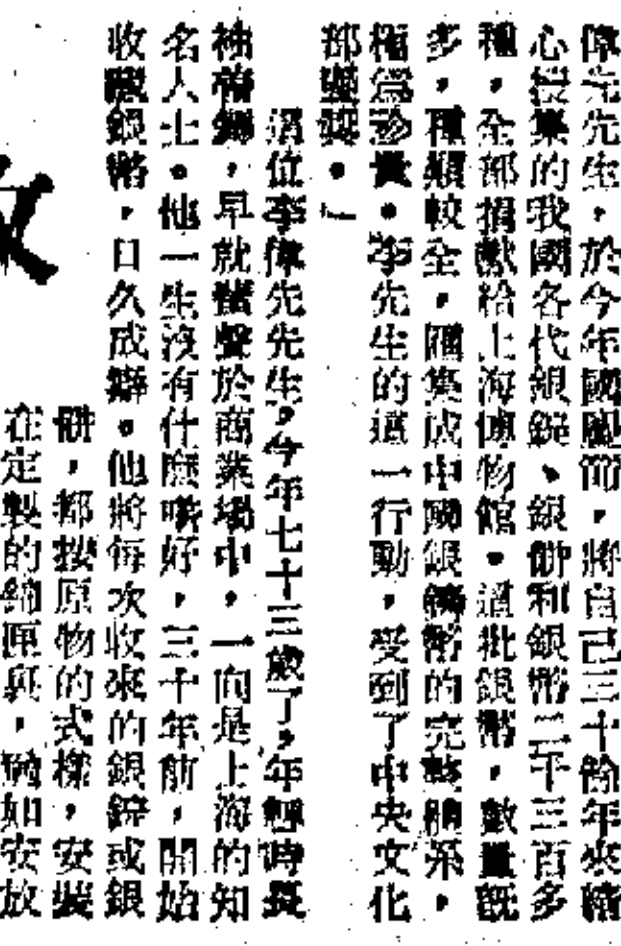 偉先先生，於今年國慶前，將自己三十餘年來精
心搜集的我國各代銀錠、銀餅和銀幣二千三百多
種，全部捐獻給上海博物館。這批銀幣，數量既
多，種類較全，匯集成中國銀鑄幣的完整體系，
極爲珍貴。李先生的這一行動，受到了中央文化
部嘉獎。」
這位李偉先先生，今年七十三歲了，年輕時長
袖善舞，早就蜚聲於商業場中，一向是上海的知
名人士。他一生沒有什麼嗜好，三十年前，開始
收藏銀幣，日久成癖。他將每次收來的銀錠或銀
餅，都按原物的式樣，安裝
在定製的錦匣裏，宛如安放